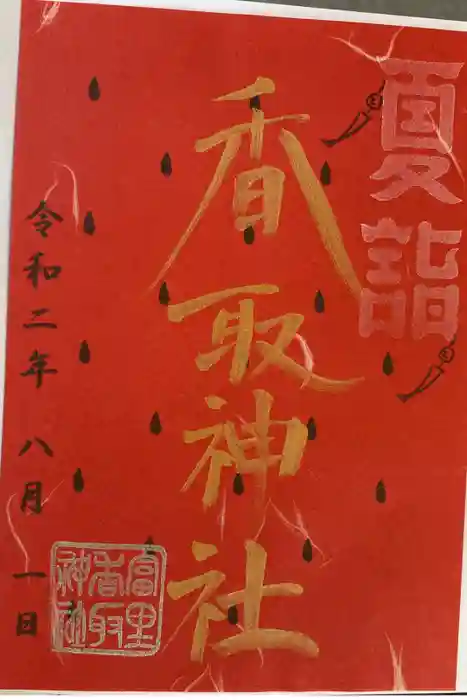 夏詣
香取神社
令和二年 八月 一日
富里
香取
神社